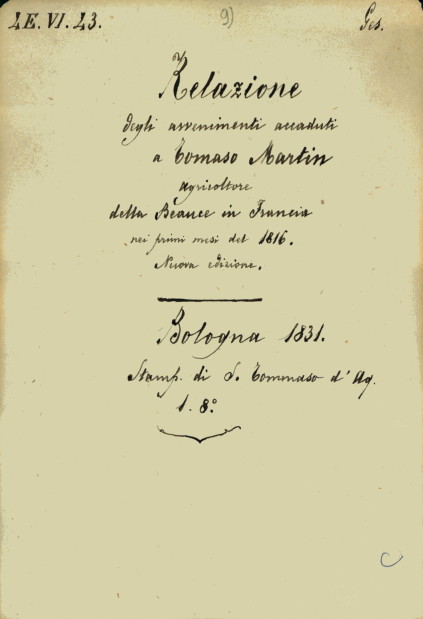 4E. VI. 43.
9)
Ges.
Relazione
degli avvenimenti accaduti
a Tomaso Martin
agricoltore
della Beauce in Francia
nei primi mesi del 1816.
Nuova edizione.
Bologna 1831.
Stamp. di S. Tommaso d'Aq.
1. 8º
C